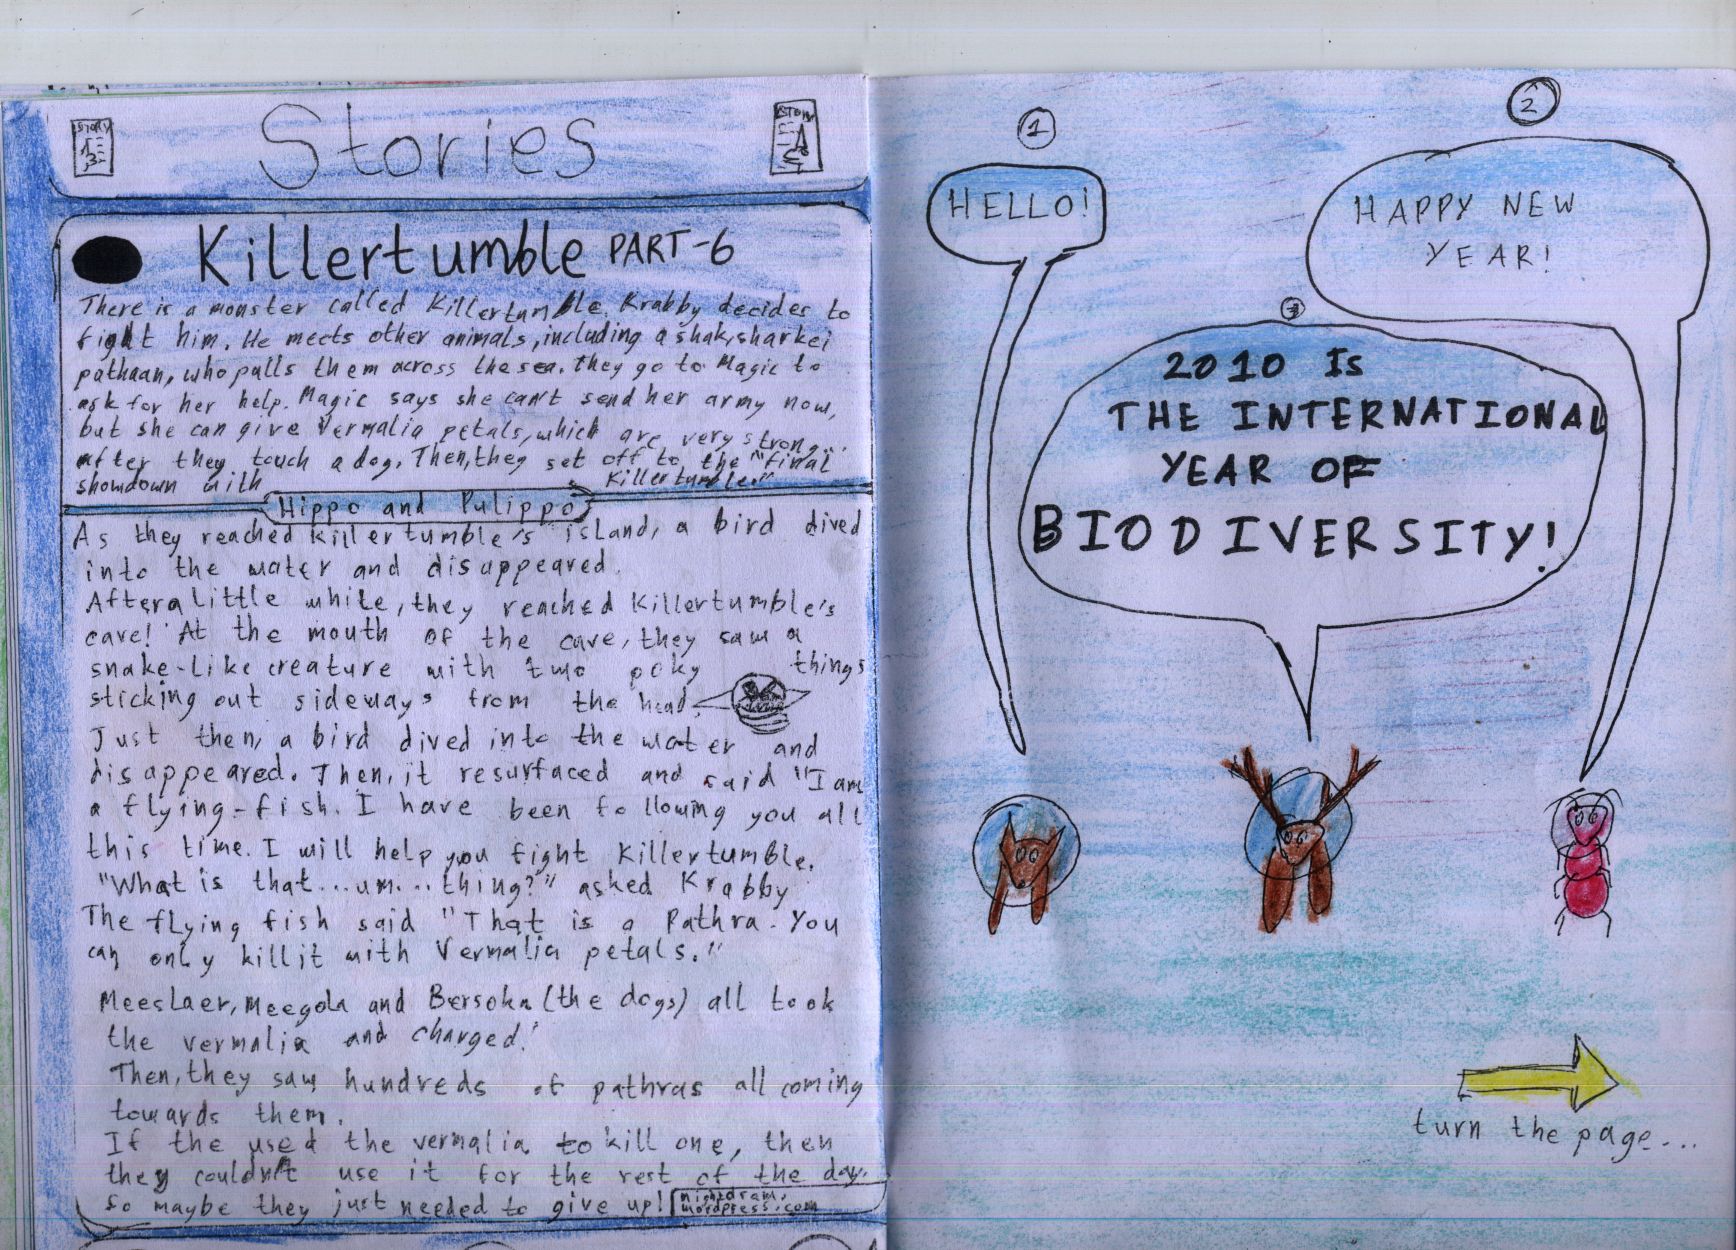 STORY
Stories
STORY
Killertumble PART-6
There is a monster called Killertumble. Krabby decides to
fight him. He meets other animals, including a shak, sharkei
pathaan, who pulls them across the sea. They go to Magic to
ask for her help. Magic says she can't send her army now,
but she can give Vermalia petals, which are very strong
after they touch a dog. Then, they set off to the "final
showdown with Killertumble."
Hippo and Pulippo
As they reached Killertumble's island, a bird dived
into the water and disappeared.
After a little while, they reached Killertumble's
cave! At the mouth of the cave, they saw a
snake-like creature with two poky things
sticking out sideways from the head.
Just then, a bird dived into the water and
disappeared. Then, it resurfaced and said "I am
a flying-fish. I have been following you all
this time. I will help you fight Killertumble.
"What is that...um...thing?" asked Krabby
The flying fish said "That is a Pathra. You
can only kill it with Vermalia petals."
Meeslaer, Meegola and Bersoka (the dogs) all took
the vermalia and charged!
Then, they saw hundreds of pathras all coming
towards them.
If the used the vermalia to kill one, then
they couldn't use it for the rest of the day.
So maybe they just needed to give up!
nightdram.
wordpress.com
1
HELLO!
2
HAPPY NEW
YEAR!
3
2010 IS
THE INTERNATIONAL
YEAR OF
BIODIVERSITY!
turn the page...